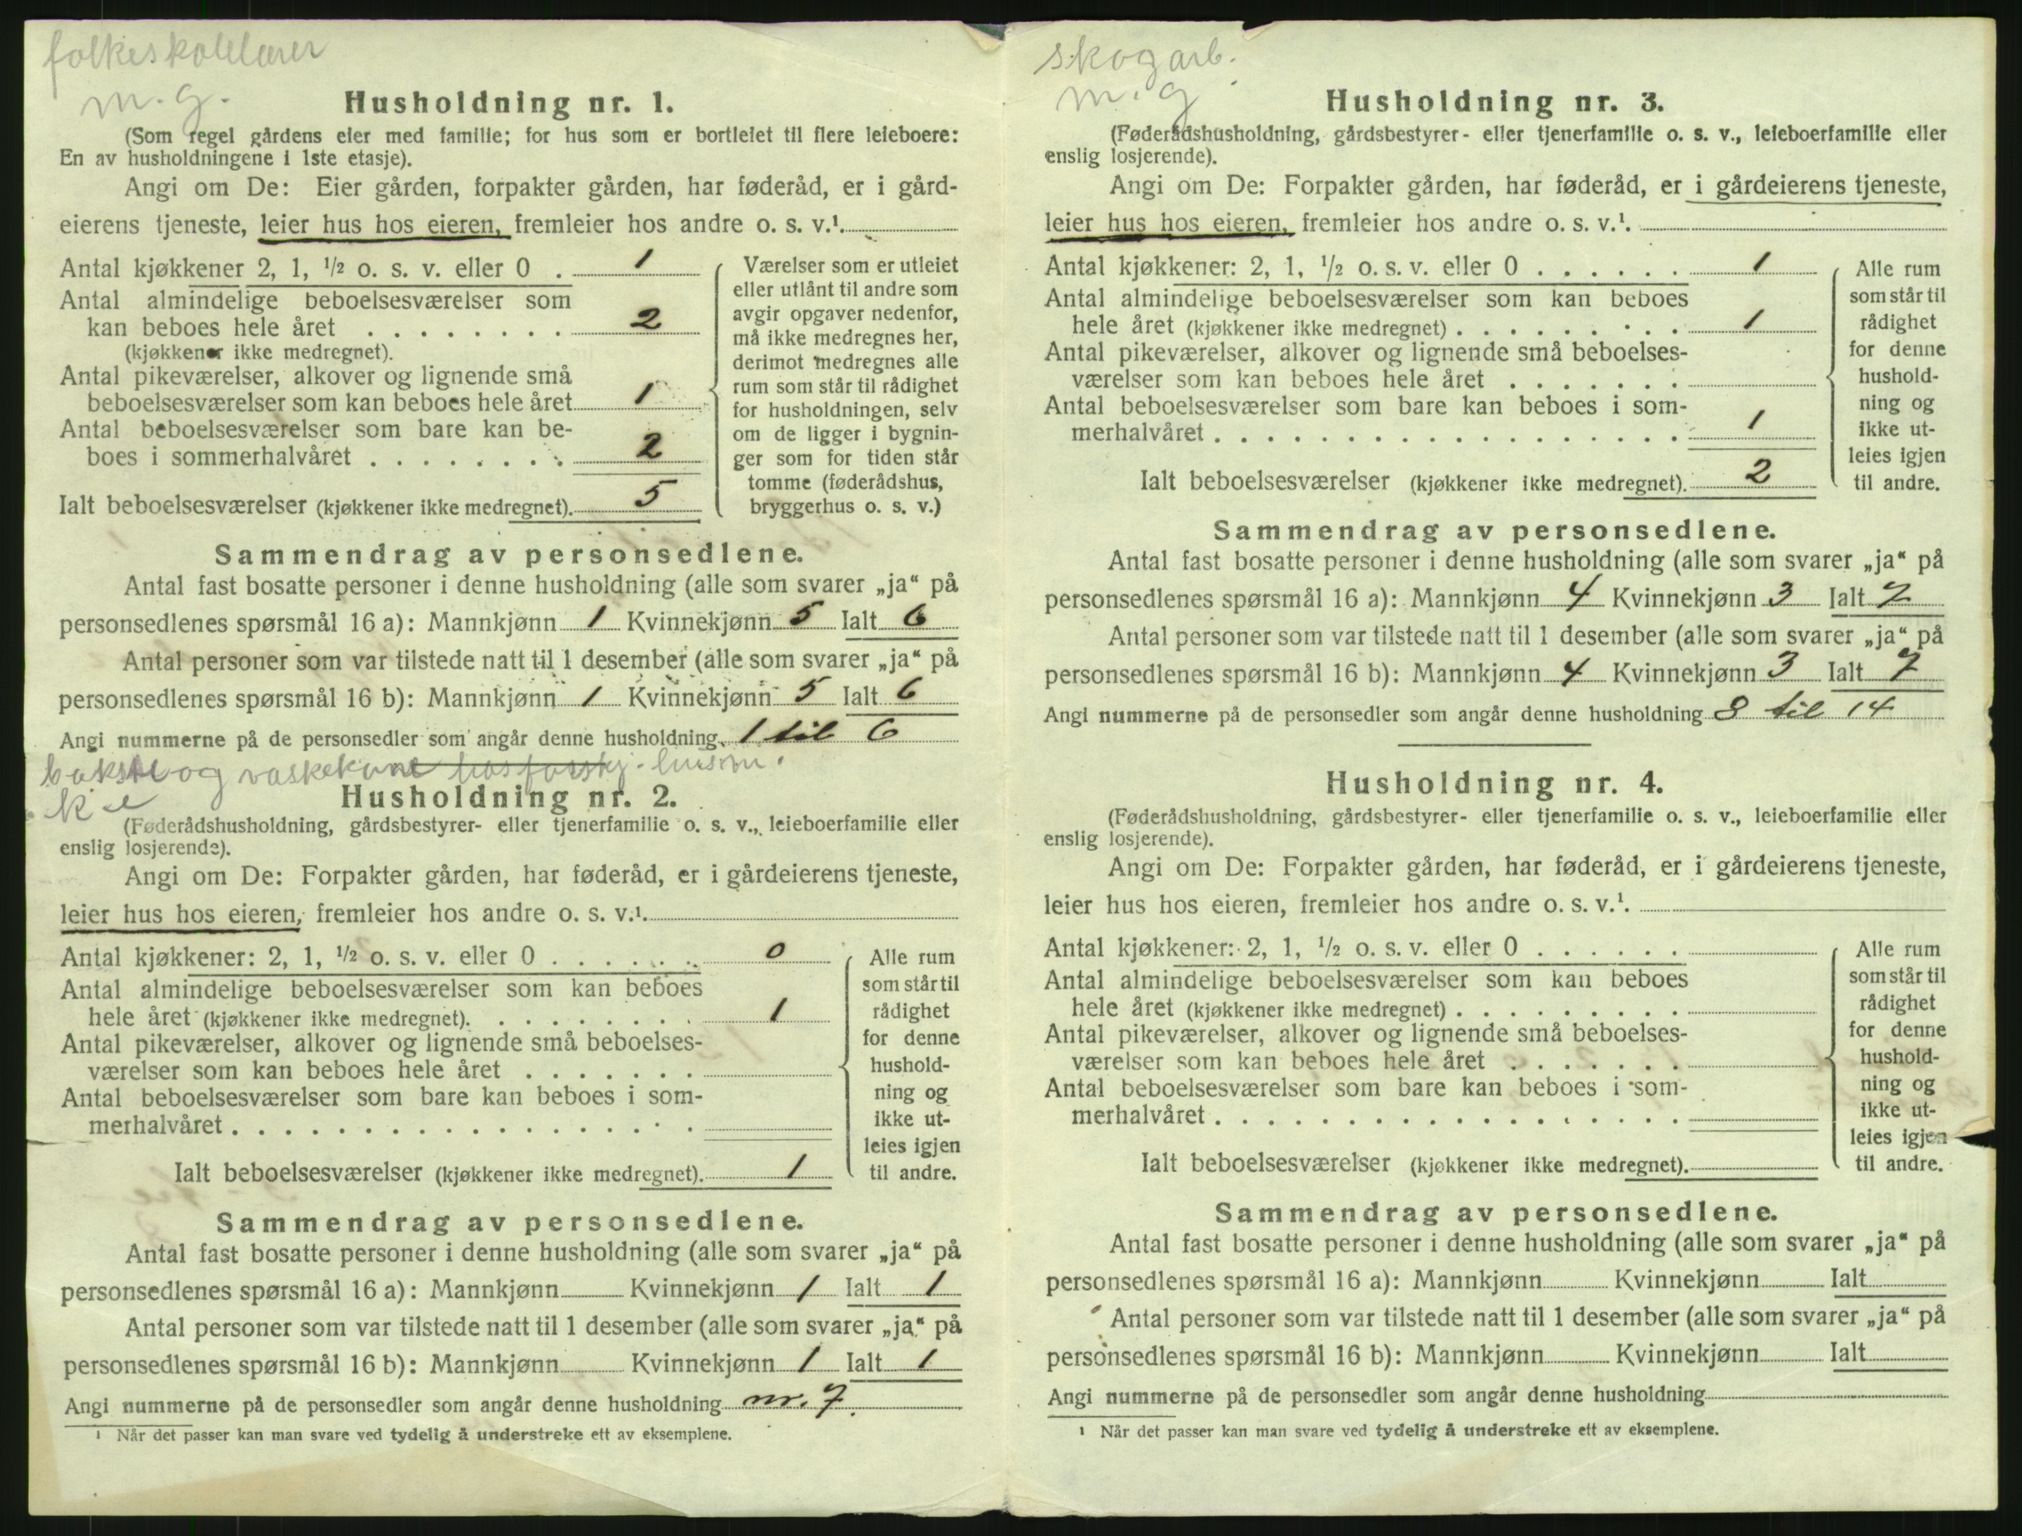 folkeskolelærer
m. g.
Husholdning nr. 1.
(Som regel gårdens eier med familie; for hus som er bortleiet til flere leieboere:
En av husholdningene i 1ste etasje).
Angi om De: Eier gården, forpakter gården, har føderåd, er i gård-
eierens tjeneste, leier hus hos eieren, fremleier hos andre o. s. v.¹.
Antal kjøkkener 2, 1, ½ o. s. v. eller 0 . 1
Antal almindelige beboelsesværelser som
kan beboes hele året . . . . . . . . 2
(kjøkkener ikke medregnet).
Antal pikeværelser, alkover og lignende små
beboelsesværelser som kan beboes hele året 1
Antal beboelsesværelser som bare kan be-
boes i sommerhalvåret . . . . . . . . 2
Ialt beboelsesværelser (kjøkkener ikke medregnet). 5
Værelser som er utleiet
eller utlånt til andre som
avgir opgaver nedenfor,
må ikke medregnes her,
derimot medregnes alle
rum som står til rådighet
for husholdningen, selv
om de ligger i bygnin-
ger som for tiden står
tomme (føderådshus,
bryggerhus o. s. v.)
Sammendrag av personsedlene.
Antal fast bosatte personer i denne husholdning (alle som svarer „ja“ på
personsedlenes spørsmål 16 a): Mannkjønn 1 Kvinnekjønn 5 Ialt 6
Antal personer som var tilstede natt til 1 desember (alle som svarer „ja“ på
personsedlenes spørsmål 16 b): Mannkjønn 1 Kvinnekjønn 5 Ialt 6
Angi nummerne på de personsedler som angår denne husholdning. 1 til 6
og vaskekone
Husholdning nr. 2.
(Føderådshusholdning, gårdsbestyrer- eller tjenerfamilie o. s. v., leieboerfamilie eller
enslig losjerende).
Angi om De: Forpakter gården, har føderåd, er i gårdeierens tjeneste,
leier hus hos eieren, fremleier hos andre o. s. v.¹.
Antal kjøkkener: 2, 1, ½ o. s. v. eller 0 . . . . . . 0
Antal almindelige beboelsesværelser som kan beboes
hele året (kjøkkener ikke medregnet). . . . . . . . . 1
Antal pikeværelser, alkover og lignende små beboelses-
værelser som kan beboes hele året . . . . . . .
Antal beboelsesværelser som bare kan beboes i som-
merhalvåret . . . . . . . . . . . . . . . . . .
Ialt beboelsesværelser (kjøkkener ikke medregnet). 1
Alle rum
som står til
rådighet
for denne
hushold-
ning og
ikke ut-
leies igjen
til andre.
Sammendrag av personsedlene.
Antal fast bosatte personer i denne husholdning (alle som svarer „ja“ på
personsedlenes spørsmål 16 a): Mannkjønn Kvinnekjønn 1 Ialt 1
Antal personer som var tilstede natt til 1 desember (alle som svarer „ja“ på
personsedlenes spørsmål 16 b): Mannkjønn Kvinnekjønn 1 Ialt 1
Angi nummerne på de personsedler som angår denne husholdning nr. 7.
¹ Når det passer kan man svare ved tydelig å understreke ett av eksemplene.
skogarb.
m. g.
Husholdning nr. 3.
(Føderådshusholdning, gårdsbestyrer- eller tjenerfamilie o. s. v., leieboerfamilie eller
enslig losjerende).
Angi om De: Forpakter gården, har føderåd, er i gårdeierens tjeneste,
leier hus hos eieren, fremleier hos andre o. s. v.¹.
Antal kjøkkener: 2, 1, ½ o. s. v. eller 0 . . . . . . 1
Antal almindelige beboelsesværelser som kan beboes
hele året (kjøkkener ikke medregnet) . . . . . . . . . 1
Antal pikeværelser, alkover og lignende små beboelses-
værelser som kan beboes hele året . . . . . . .
Antal beboelsesværelser som bare kan beboes i som-
merhalvåret . . . . . . . . . . . . . . . . . . 1
Ialt beboelsesværelser (kjøkkener ikke medregnet). 2
Alle rum
som står til
rådighet
for denne
hushold-
ning og
ikke ut-
leies igjen
til andre.
Sammendrag av personsedlene.
Antal fast bosatte personer i denne husholdning (alle som svarer „ja“ på
personsedlenes spørsmål 16 a): Mannkjønn 4 Kvinnekjønn 3 Ialt 7
Antal personer som var tilstede natt til 1 desember (alle som svarer „ja“ på
personsedlenes spørsmål 16 b): Mannkjønn 4 Kvinnekjønn 3 Ialt 7
Angi nummerne på de personsedler som angår denne husholdning 8 til 14
Husholdning nr. 4.
(Føderådshusholdning, gårdsbestyrer- eller tjenerfamilie o. s. v., leieboerfamilie eller
enslig losjerende).
Angi om De: Forpakter gården, har føderåd, er i gårdeierens tjeneste,
leier hus hos eieren, fremleier hos andre o. s. v.¹.
Antal kjøkkener: 2, 1, ½ o. s. v. eller 0 . . . . . .
Antal almindelige beboelsesværelser som kan beboes
hele året (kjøkkener ikke medregnet) . . . . . . . . .
Antal pikeværelser, alkover og lignende små beboelses-
værelser som kan beboes hele året . . . . . . .
Antal beboelsesværelser som bare kan beboes i som-
merhalvåret . . . . . . . . . . . . . . . . . .
Ialt beboelsesværelser (kjøkkener ikke medregnet).
Alle rum
som står til
rådighet
for denne
hushold-
ning og
ikke ut-
leies igjen
til andre.
Sammendrag av personsedlene.
Antal fast bosatte personer i denne husholdning (alle som svarer „ja“ på
personsedlenes spørsmål 16 a): Mannkjønn Kvinnekjønn Ialt
Antal personer som var tilstede natt til 1 desember (alle som svarer „ja“ på
personsedlenes spørsmål 16 b): Mannkjønn Kvinnekjønn Ialt
Angi nummerne på de personsedler som angår denne husholdning
¹ Når det passer kan man svare ved tydelig å understreke ett av eksemplene.